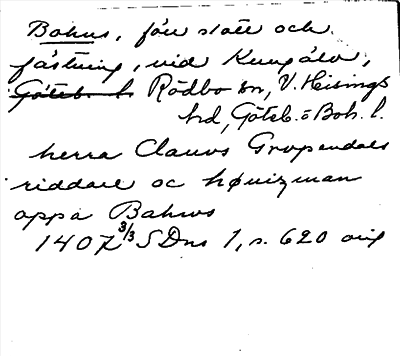 Bohus, förr slott och
fästning, vid Kungälv,
Göteb. l. Rödbo sn, V. Hisings
hd, Göteb. o Boh. l.
herra Clauus Gropendals
riddare oc høuizman
oppa Bahws
1407 3/3 SDns 1, s. 620 orig